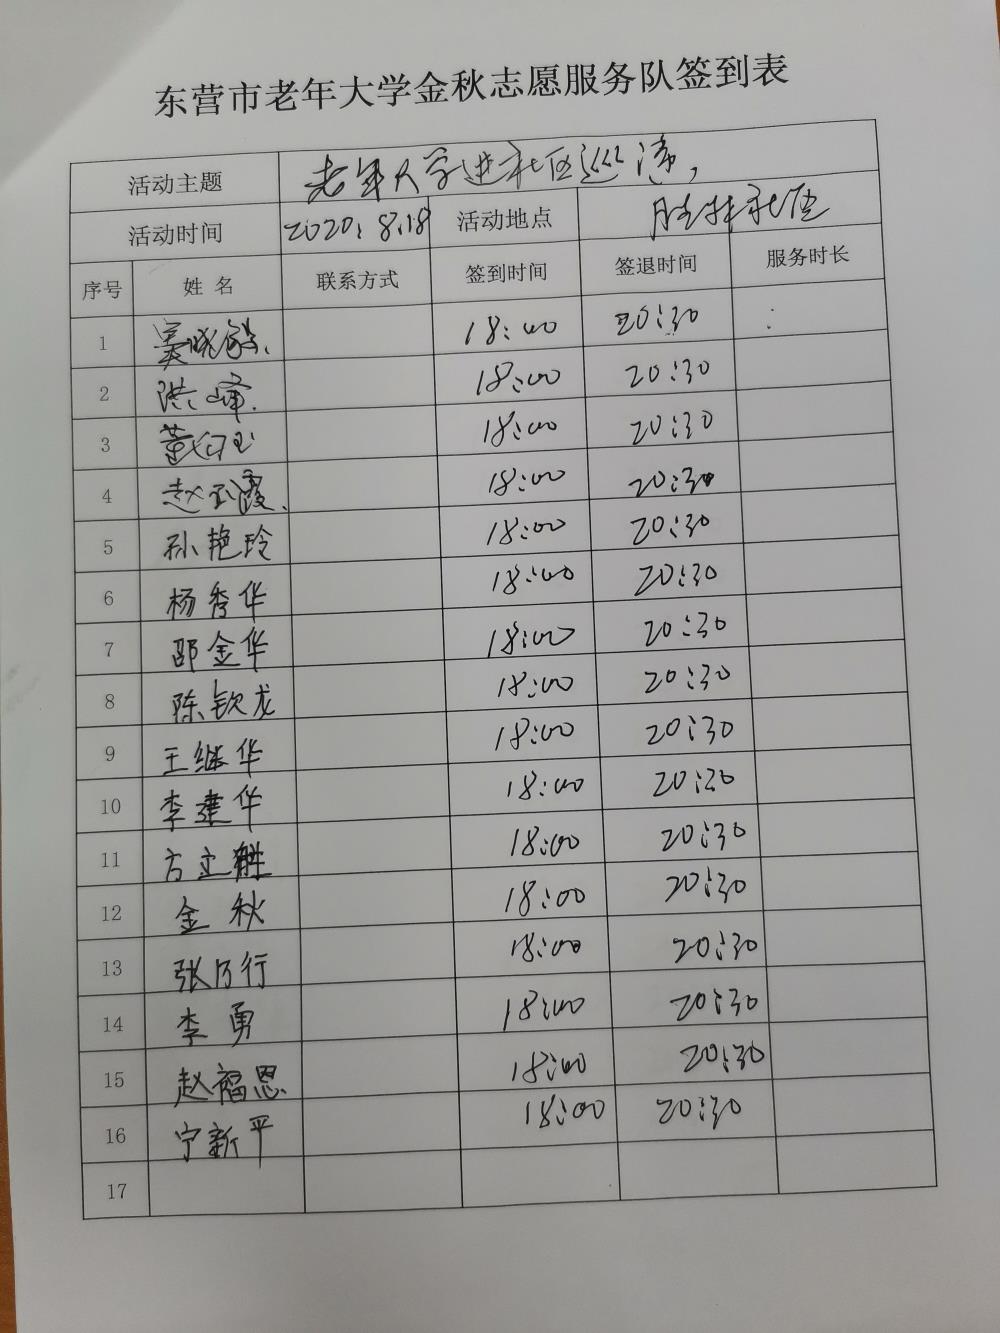 东营市老年大学金秋志愿服务队签到表
活动主题 老年大学进社区巡演,
活动时间 2020.8.18 活动地点 胜林社区
序号 姓 名 联系方式 签到时间 签退时间 服务时长
1 18:00 20:30
2 洪峰. 18:00 20:30
3 18:00 20:30
4 赵 霞. 18:00 20:30
5 孙艳玲 18:00 20:30
6 杨秀华 18:00 20:30
7 邵金华 18:00 20:30
8 陈钦龙 18:00 20:30
9 王继华 18:00 20:30
10 李建华 18:00 20:30
11 方立胜 18:00 20:30
12 金秋 18:00 20:30
13 张乃行 18:00 20:30
14 李勇 18:00 20:30
15 赵福恩 18:00 20:30
16 宁新平 18:00 20:30
17